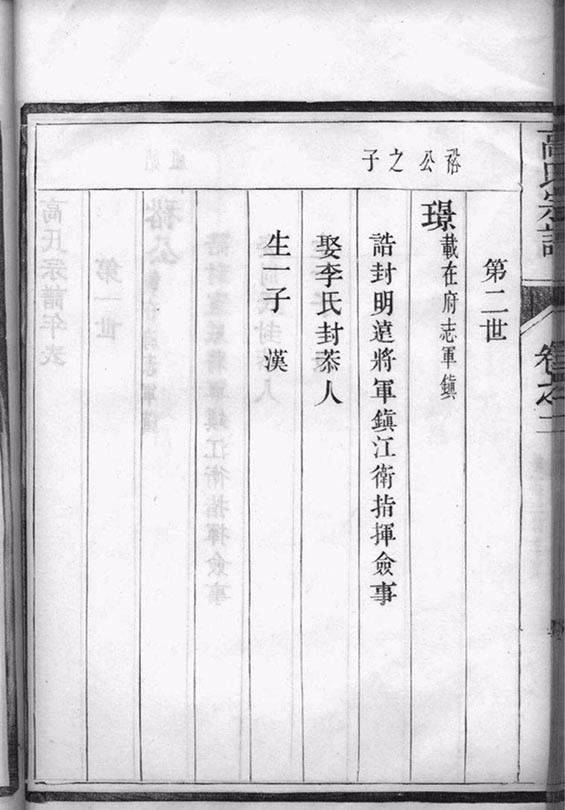 高氏宗譜
卷之二
第二世
裕公之子
璟載在府志軍鎮
誥封明遠將軍鎮江衛指揮僉事
娶李氏封恭人
生一子 漢